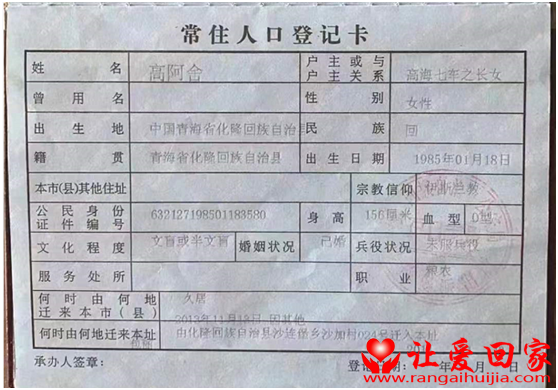 常住人口登记卡
姓名 高阿舍 户主或与户主关系 高海七车之长女
曾用名 性别 女性
出生地 中国青海省化隆回族自治县 民族 回
籍贯 青海省化隆回族自治县 出生日期 1985年01月18日
本市(县)其他住址 宗教信仰 伊斯兰教
公民身份证件编号 632127198501183580 身高 156厘米 血型 O型
文化程度 文盲或半文盲 婚姻状况 已婚 兵役状况 未服兵役
服务处所 职业 粮农
何时由何地迁来本市(县) 久居
2013年11月13日 因其他
何时由何地迁来本址 由化隆回族自治县沙连堡乡沙加村024号迁入本址
承办人签章: 登记日期: 年 月
让爱回家
www.rangaihuijia.com